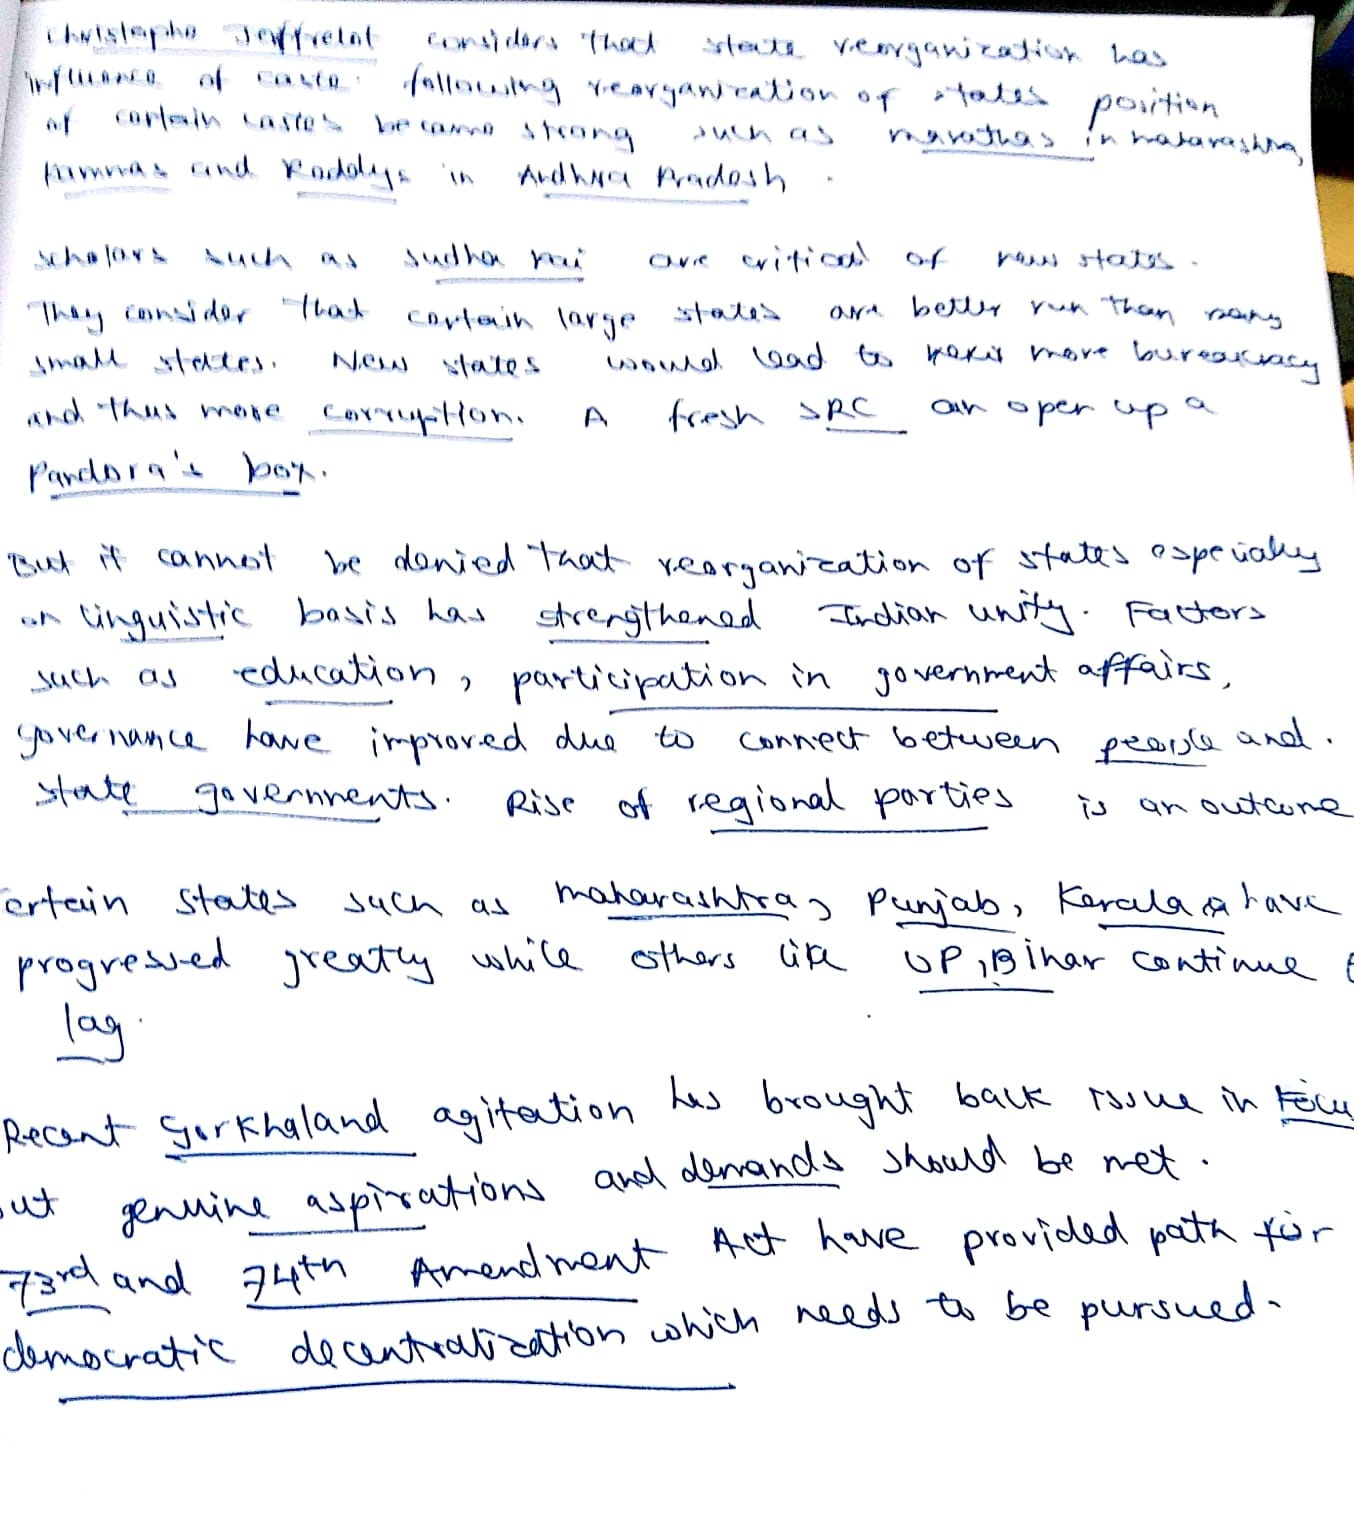 Christophe Jeffrelot considers that state reorganization has
influence of caste. following reorganization of states position
of certain castes became strong such as marathas in maharashtra,
Kammas and Reddys in Andhra Pradesh.
scholars such as sudha rai are critical of new states.
They consider that certain large states are better run than many
small states. New states would lead to more bureacracy
and thus more corruption. A fresh SRC can open up a
Pandora's box.
But it cannot be denied that reorganization of states especially
on linguistic basis has strengthened Indian unity. Factors
such as education, participation in government affairs,
governance have improved due to connect between people and.
state governments. Rise of regional parties is an outcome
ertain states such as maharashtra, Punjab, Kerala have
progressed greatly while others like UP, Bihar continue
lag.
Recent Gorkhaland agitation has brought back issue in Focu
ut genuine aspirations and demands should be met.
73rd and 74th Amendment Act have provided path for
democratic decentralization which needs to be pursued.